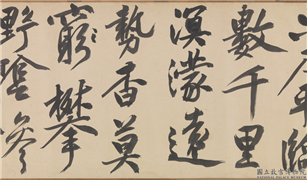 平
數千里
溟濛遠
勢杳莫
窮攀
野陰
國立故宮博物院